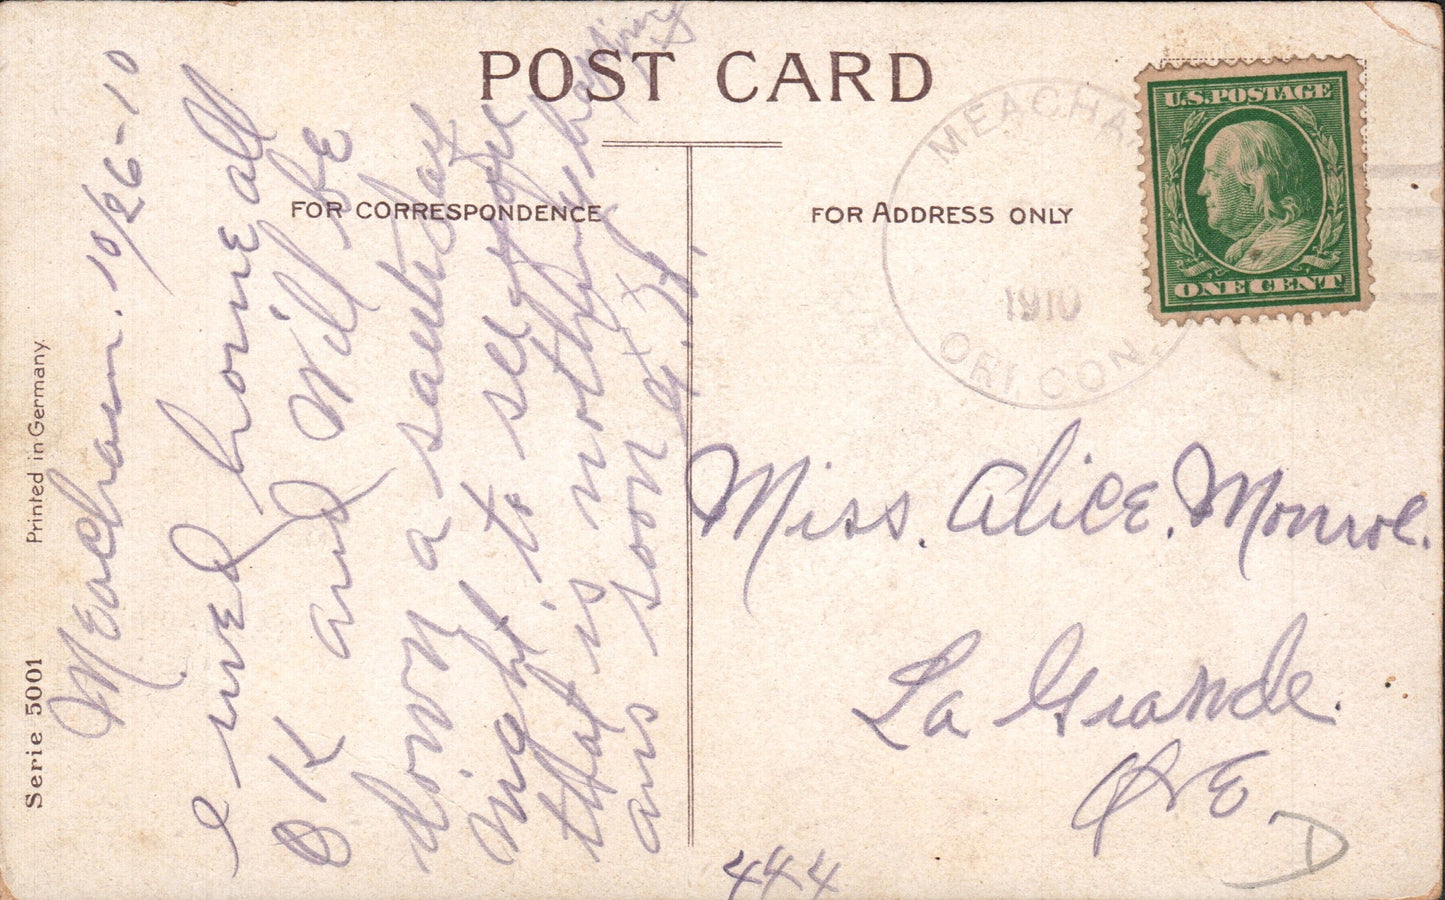 POST CARD
FOR CORRESPONDENCE
FOR ADDRESS ONLY
U.S. POSTAGE
ONE CENT
MEACHA
1910
ORE CON.
Meacham. 10/26-10
rived home all
OK and Will be
down a saterday
night to see you
that is nothing
ans soon
G. H.
Miss. Alice. Monroe.
La Grande.
Ore.
D
444
Serie 5001
Printed in Germany.